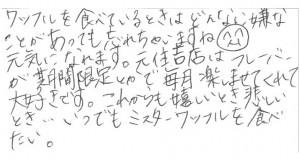 ワッフルを食べているときはどんなに嫌な
ことがあっても忘れちゃいますね
元気になれます。元住吉店はフレーバー
が期間限定とかで毎月楽しませてくれて
大好きです。これからも嬉しいとき悲しい
とき…いつでもミスターワッフルを食べ
たい。